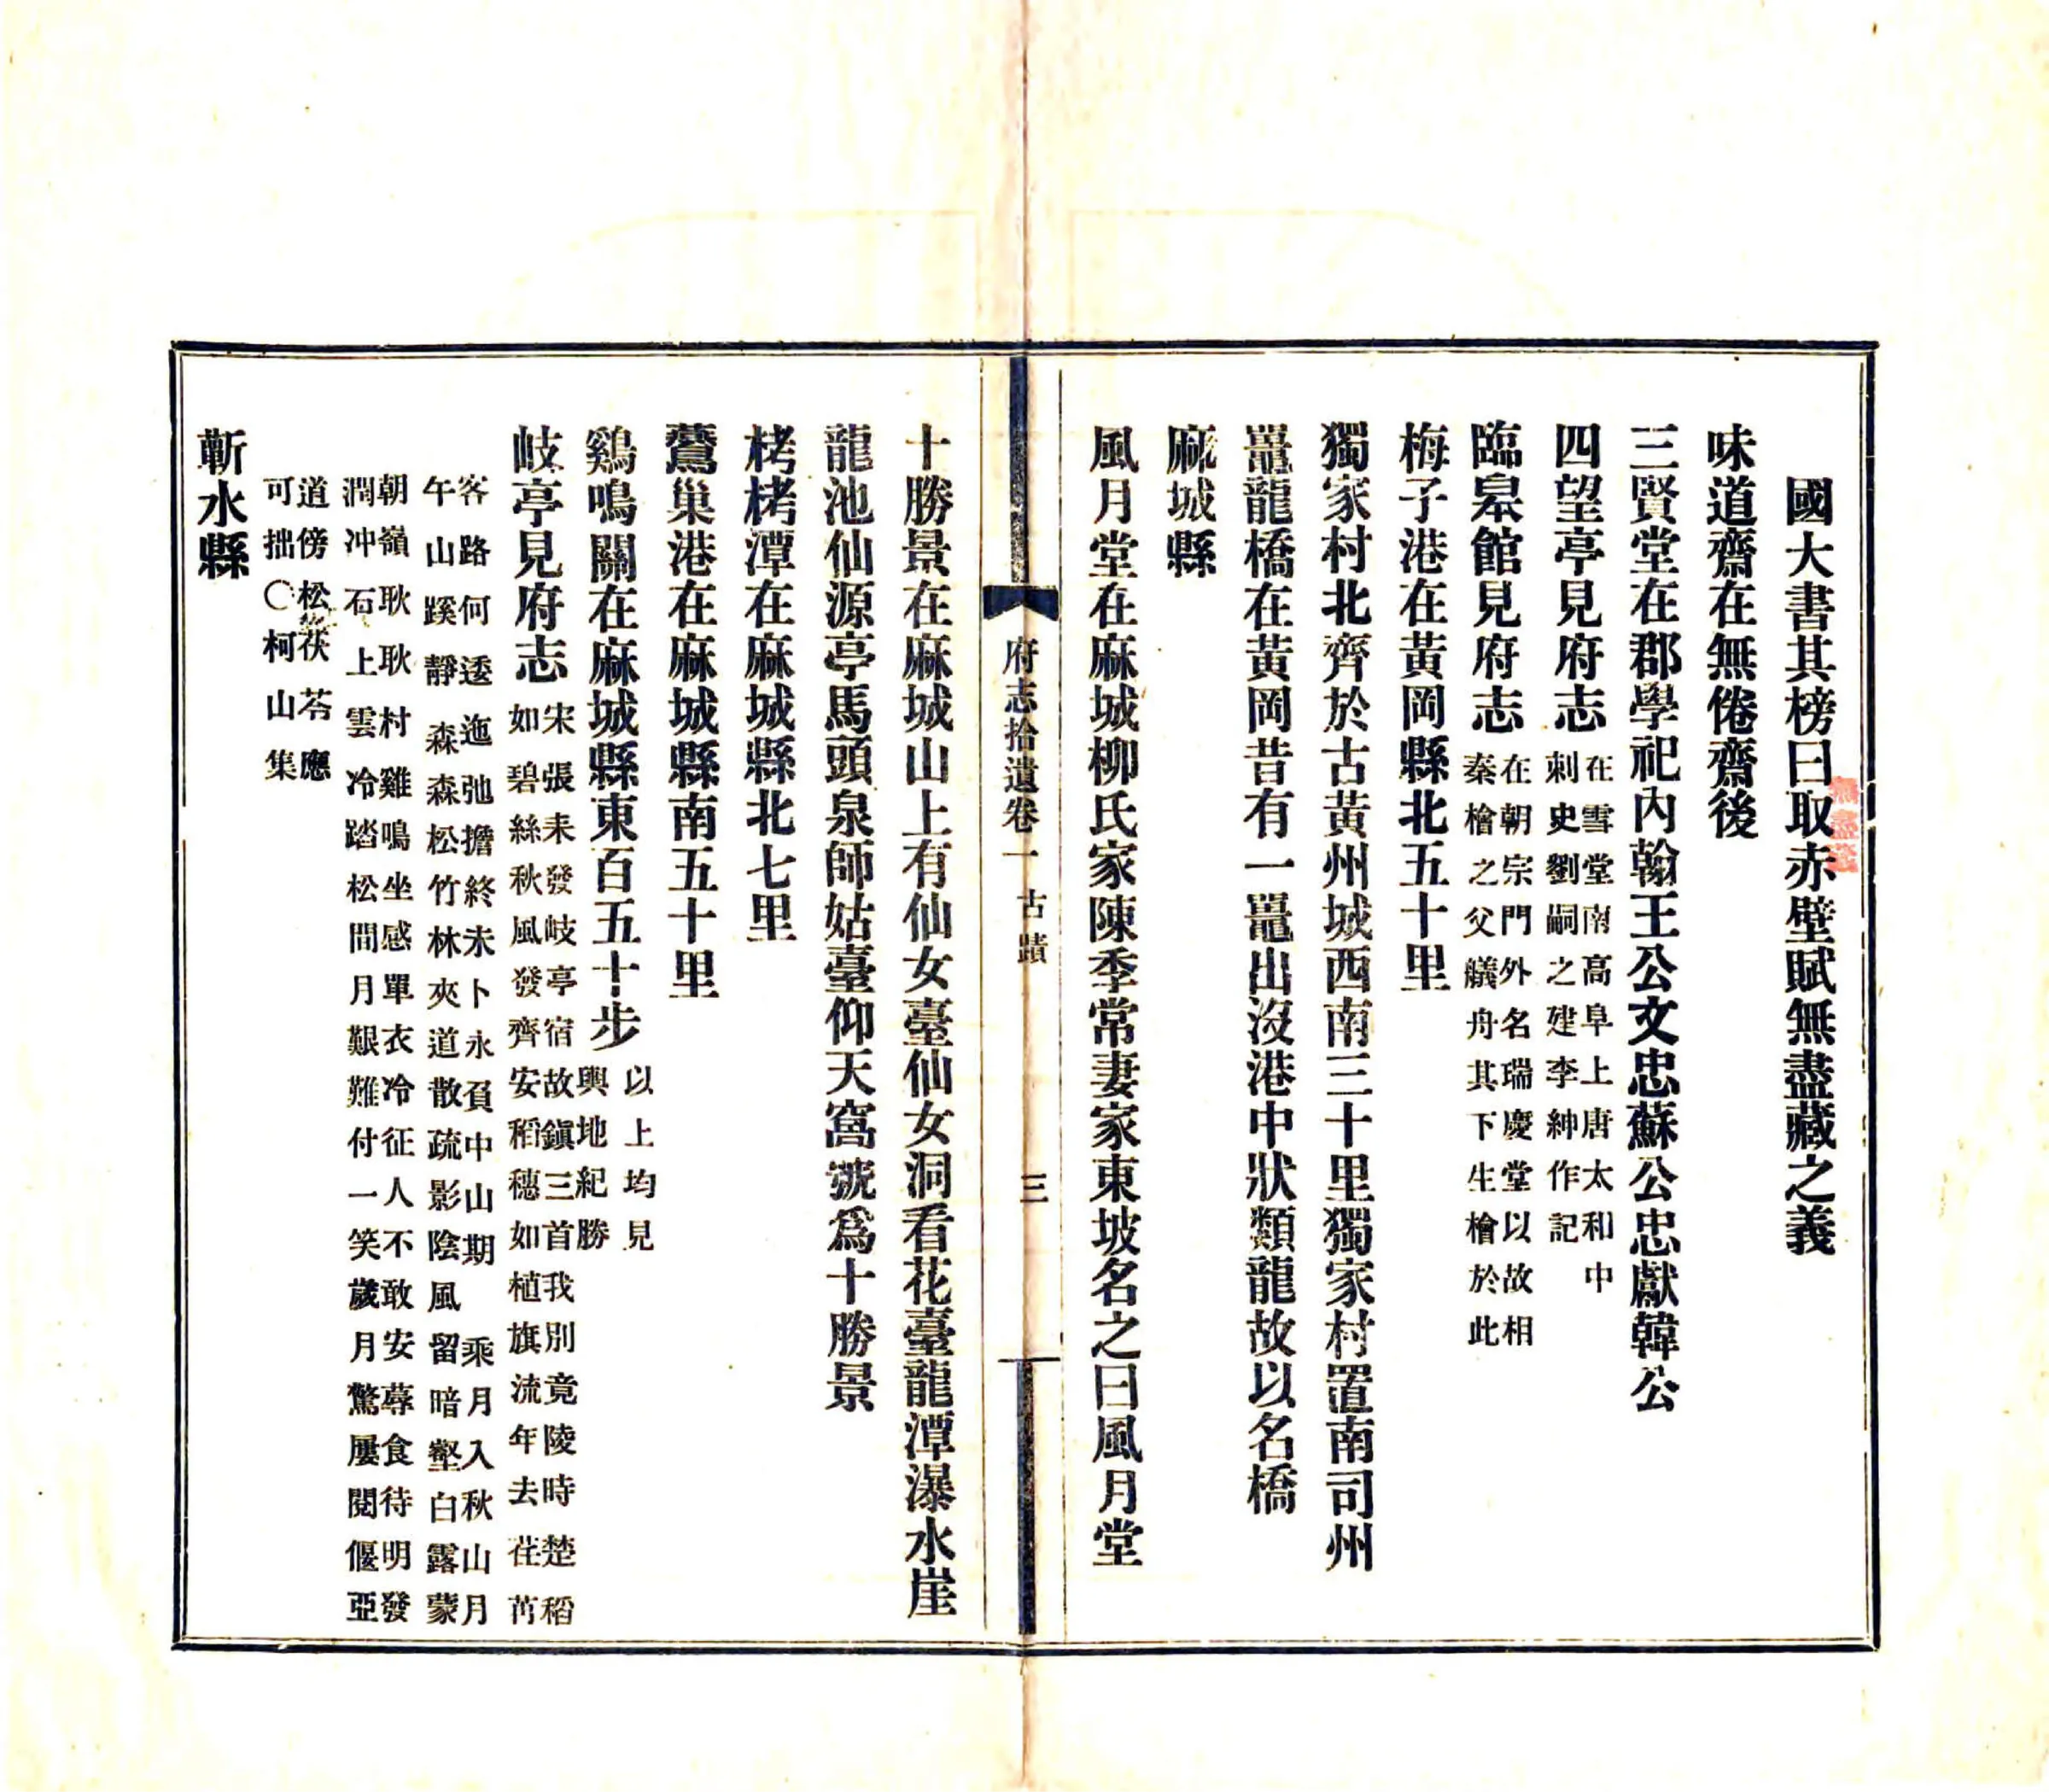 國大書其榜曰取赤壁賦無盡藏之義
味道齋在無倦齋後
三賢堂在郡學祀內翰王公文忠蘇公忠獻韓公
四望亭見府志在雪堂南高阜上唐太和中
刺史劉嗣之建李紳作記
臨皋館見府志在朝宗門外名瑞慶堂以故相
秦檜之父艤舟其下生檜於此
梅子港在黃岡縣北五十里
獨家村北齊於古黃州城西南三十里獨家村置南司州
鼉龍橋在黃岡昔有一鼉出沒港中狀類龍故以名橋
麻城縣
風月堂在麻城柳氏家陳季常妻家東坡名之曰風月堂
府志拾遺卷一 古蹟 三
十勝景在麻城山上有仙女臺仙女洞看花臺龍潭瀑水崖
龍池仙源亭馬頭泉師姑臺仰天窩號爲十勝景
栲栳潭在麻城縣北七里
鷟巢港在麻城縣南五十里
鷄鳴關在麻城縣東百五十步以上均見
輿地紀勝
岐亭見府志宋張耒發岐亭宿故鎭三首我別竟陵時楚稻
如碧絲秋風發齊安稻穗如植旗流年去荏苒
客路何逶迤弛擔終未卜永負中山期 乘月入秋山月
午山蹊靜森森松竹林夾道散疏影陰風留暗壑白露蒙
朝嶺耿耿村雞鳴坐感單衣冷征人不敢安蓐食待明發
澗冲石上雲冷踏松間月艱難付一笑歲月驚屢閱偃亞
道傍松茯苓應
可拙○柯山集
蘄水縣